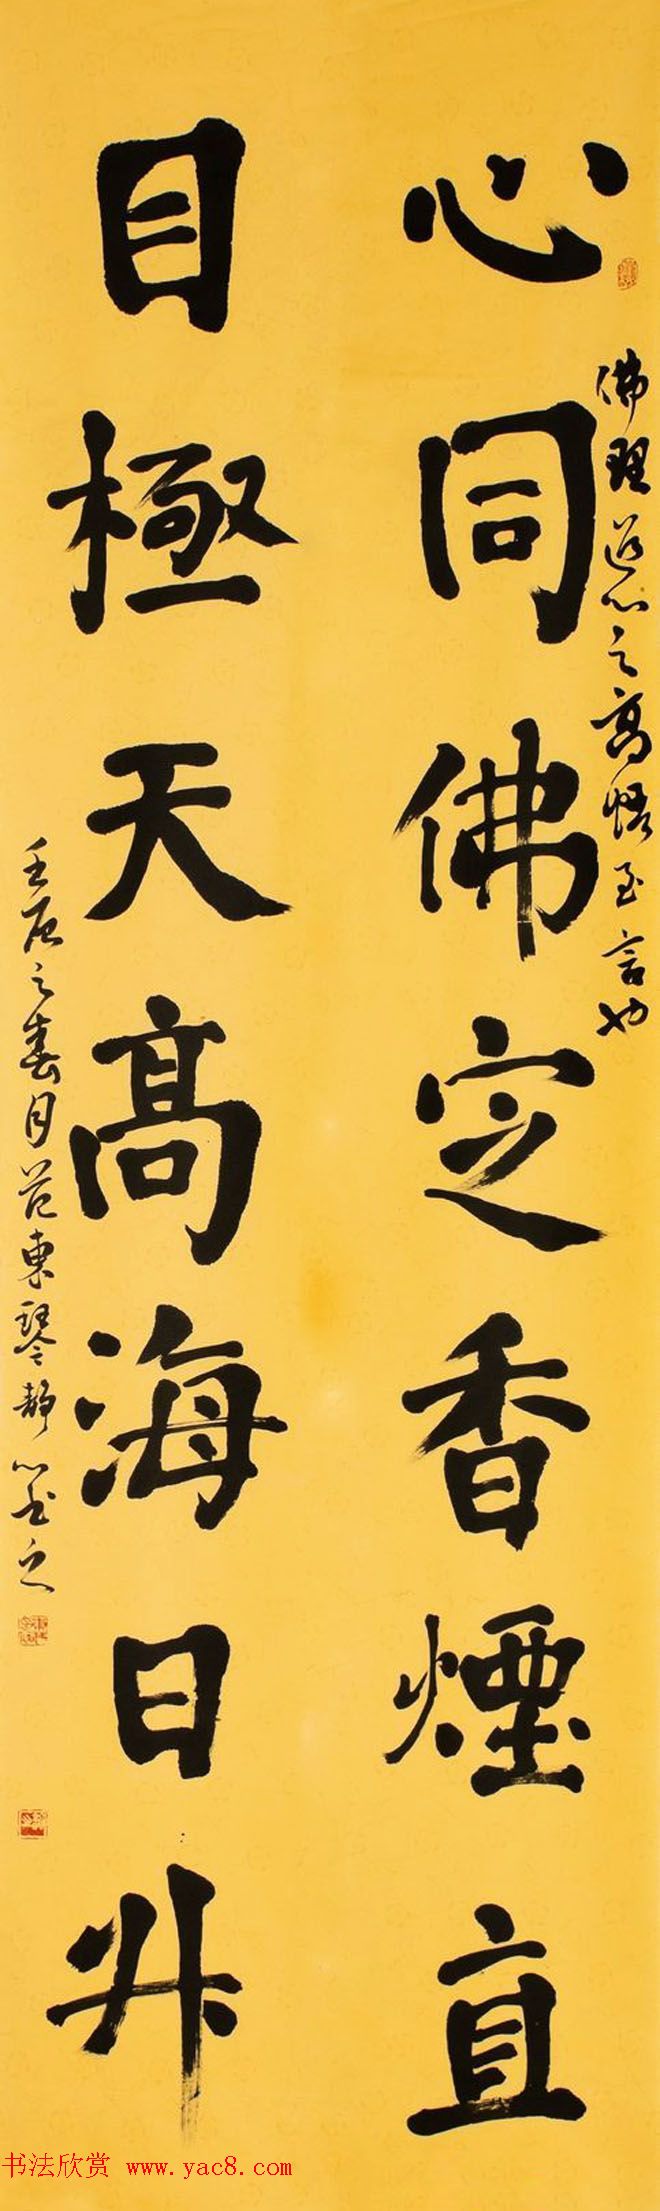 心同佛定香煙直
目極天高海日升
佛理道心之高悟至言也
壬辰之春月范東琴靜心書之
书法欣赏 www.yac8.com